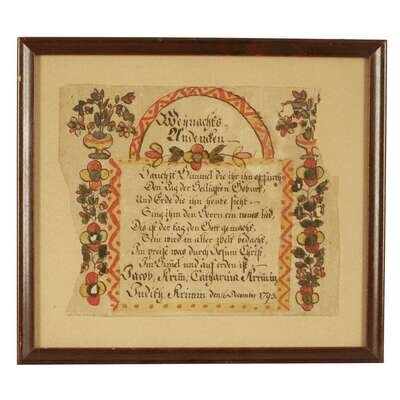 Weynachts
Andencken
Jauchzt Himmel die ihr ihn
Den Tag der Heiligsten Geburt
Und Erde die ihn heute sieht
Sing ihm den Herrn ein neues lied
Dis ist der tag den Gott gemacht
Sein wird in aller welt gedacht
Ihn preise was durch Jesum Christ
Im Himel und auf erden ist
Jacob, Krim, Catharina Krimin
Judith, Krimin den, December 1793